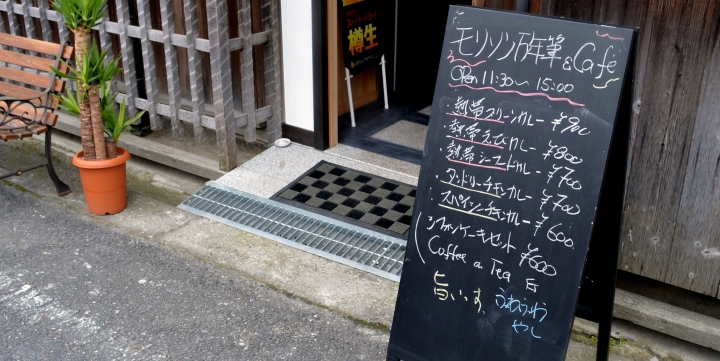 樽生
モリソン万年筆&Cafe
OPEN 11:30〜15:00
・熱帯グリーンカレー ¥900
・熱帯えびカレー ¥800
・熱帯シーフードカレー ¥700
・タンドリーチキンカレー ¥700
・スパイシーチキンカレー ¥600
シフォンケーキセット ¥600
(Coffee or Tea
旨いです。